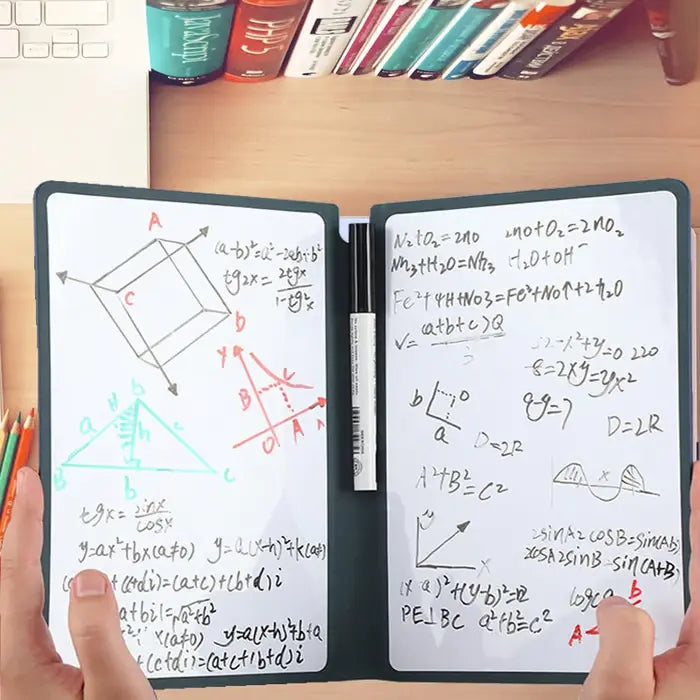 JavaScript
PHP5
A
(a-b)²=a²-2ab+b²
tg2x=2tgx/1-tg²x
C
D
Y
B
C
O
A
X
b
a
H
h
c
B
b
C
tgx=sinx/cosx
y=ax²+bx(a≠0) y=a(x-h)²+k(a≠
+(c+di)=(a+c)+(b+d)i
a+bi|=√a²+b²
x(a≠0) y=a(x-h)²+b+a
+(c+di)=(a+c+1b+d)i
N₂+O₂=2no 2no+O₂=2nO₂
Nh₃+H₂O=Nh₃ H₂O+OH⁻
Fe²+4H+NO3=Fe³+No↑+2h₂O
V=(a+b+c)Q/3
-x²+y=0 220
8=2xy=yx²
b
O
a
D=2R
q-y=7
D=2R
A²+B²=C²
x
y
x
2sinA2cosB=sin(Ab)
2cosA2sinB=sin(A+B)
(x-a)²+(y-b)²=12
PE⊥BC a²+b²=c²
b
A